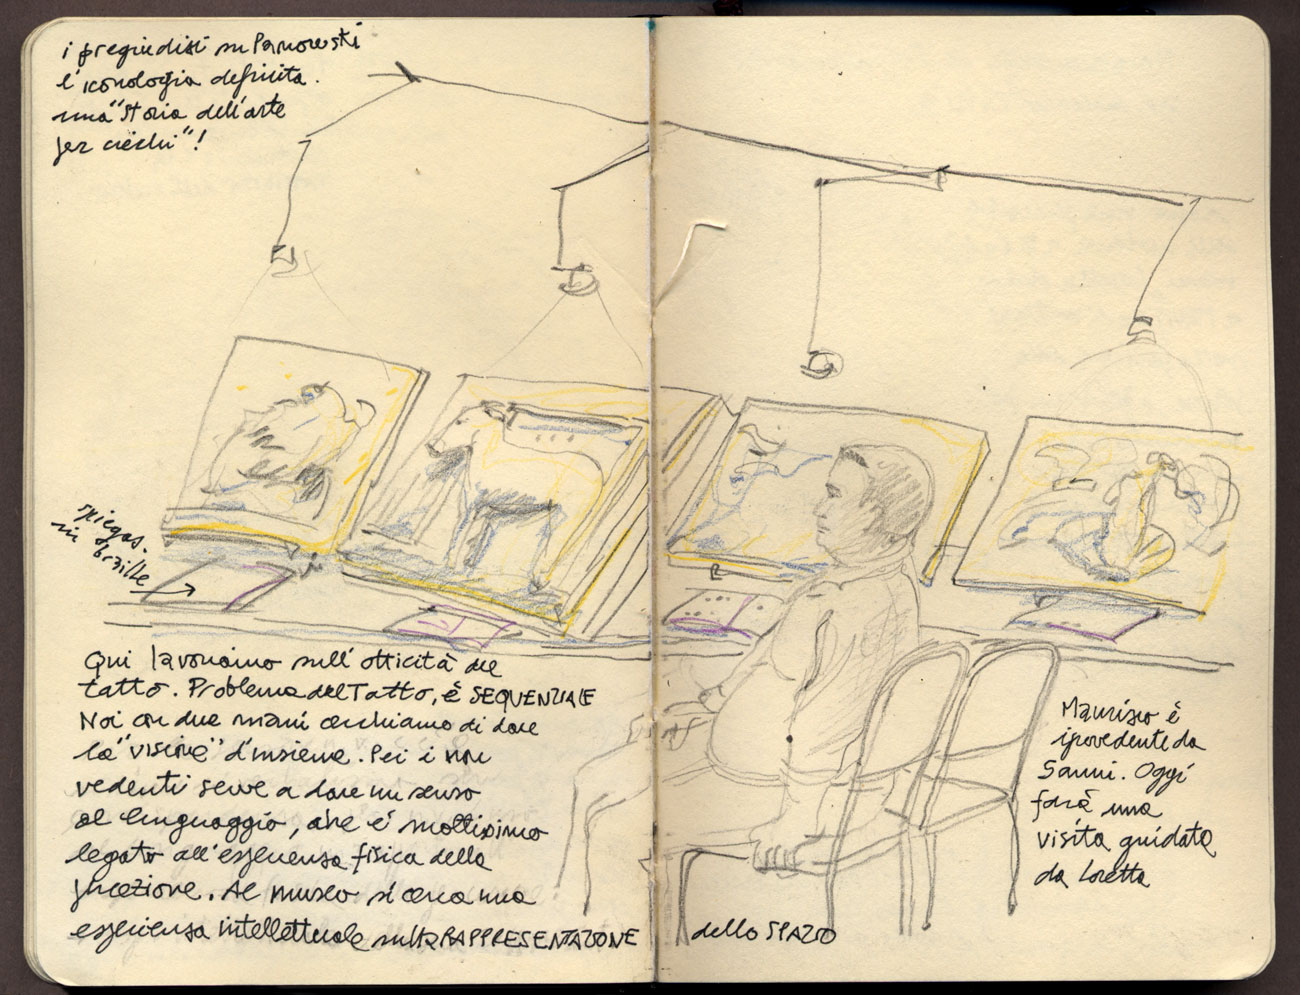 i pregiudizi su Parnowski
l'iconologia definita.
una "storia dell'arte
per ciechi"!
spiegaz.
in braille
Qui lavoriamo sull'otticità del
tatto. Problema del Tatto, è SEQUENZIALE
Noi con due mani cerchiamo di dare
la "visione" d'insieme. Per i non
vedenti serve a dare un senso
al linguaggio, che è moltissimo
legato all'esperienza fisica della
Al museo si cerca una
esperienza intellettuale sulla RAPPRESENTAZIONE
dello SPAZIO
Maurizio è
ipovedente da
Oggi
farà una
visita guidata
da Loretta